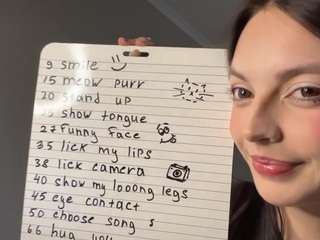 9 smile
15 meow purr
20 stand up
show tongue
27 funny face
35 lick my lips
38 lick camera
40 show my looong legs
45 eye contact
50 choose song
66 hug